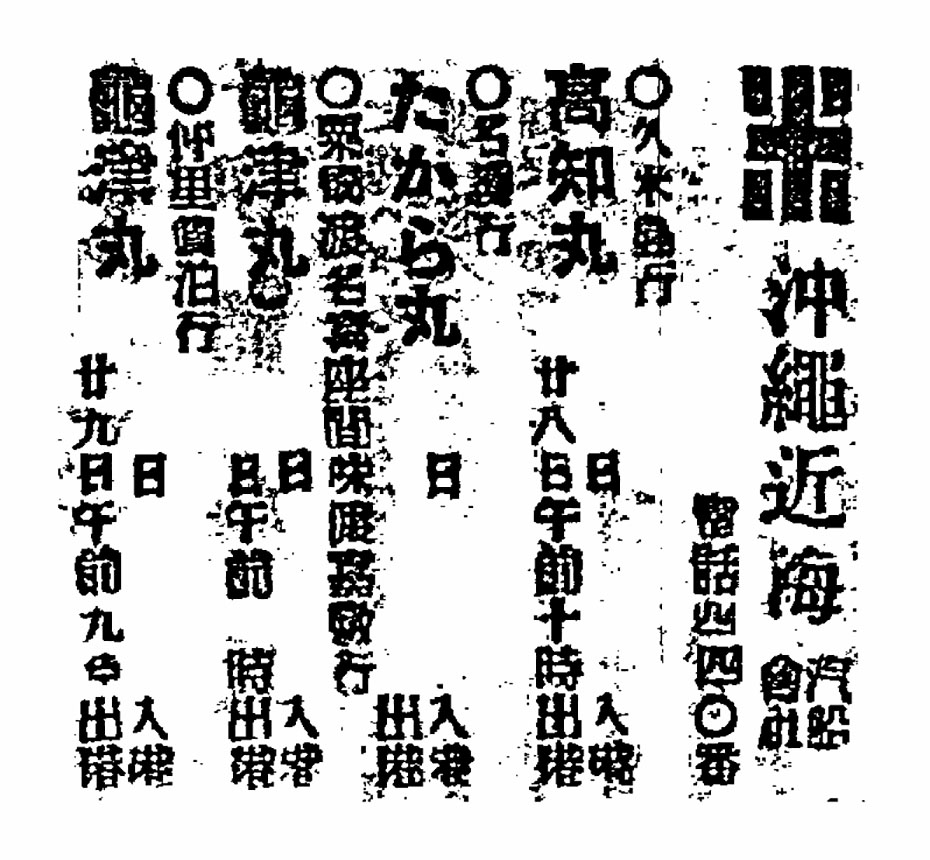 沖繩近海
汽船
會社
電話四〇番
〇久米島行
高知丸
日入港
廿八日午前十時出港
〇名瀬行
たから丸
日入港
出港
〇粟國渡名喜座間味渡嘉敷行
龜津丸
日入港
日午前 時出港
〇仲里泊行
龜津丸
日入港
廿九日午前九時出港